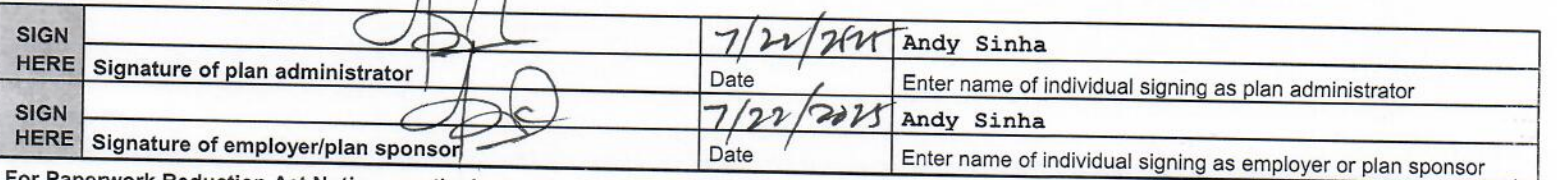 SIGN HERE 7/22/2025 Andy Sinha
Signature of plan administrator Date Enter name of individual signing as plan administrator
SIGN HERE 7/22/2025 Andy Sinha
Signature of employer/plan sponsor Date Enter name of individual signing as employer or plan sponsor
For Paperwork Reduction Act